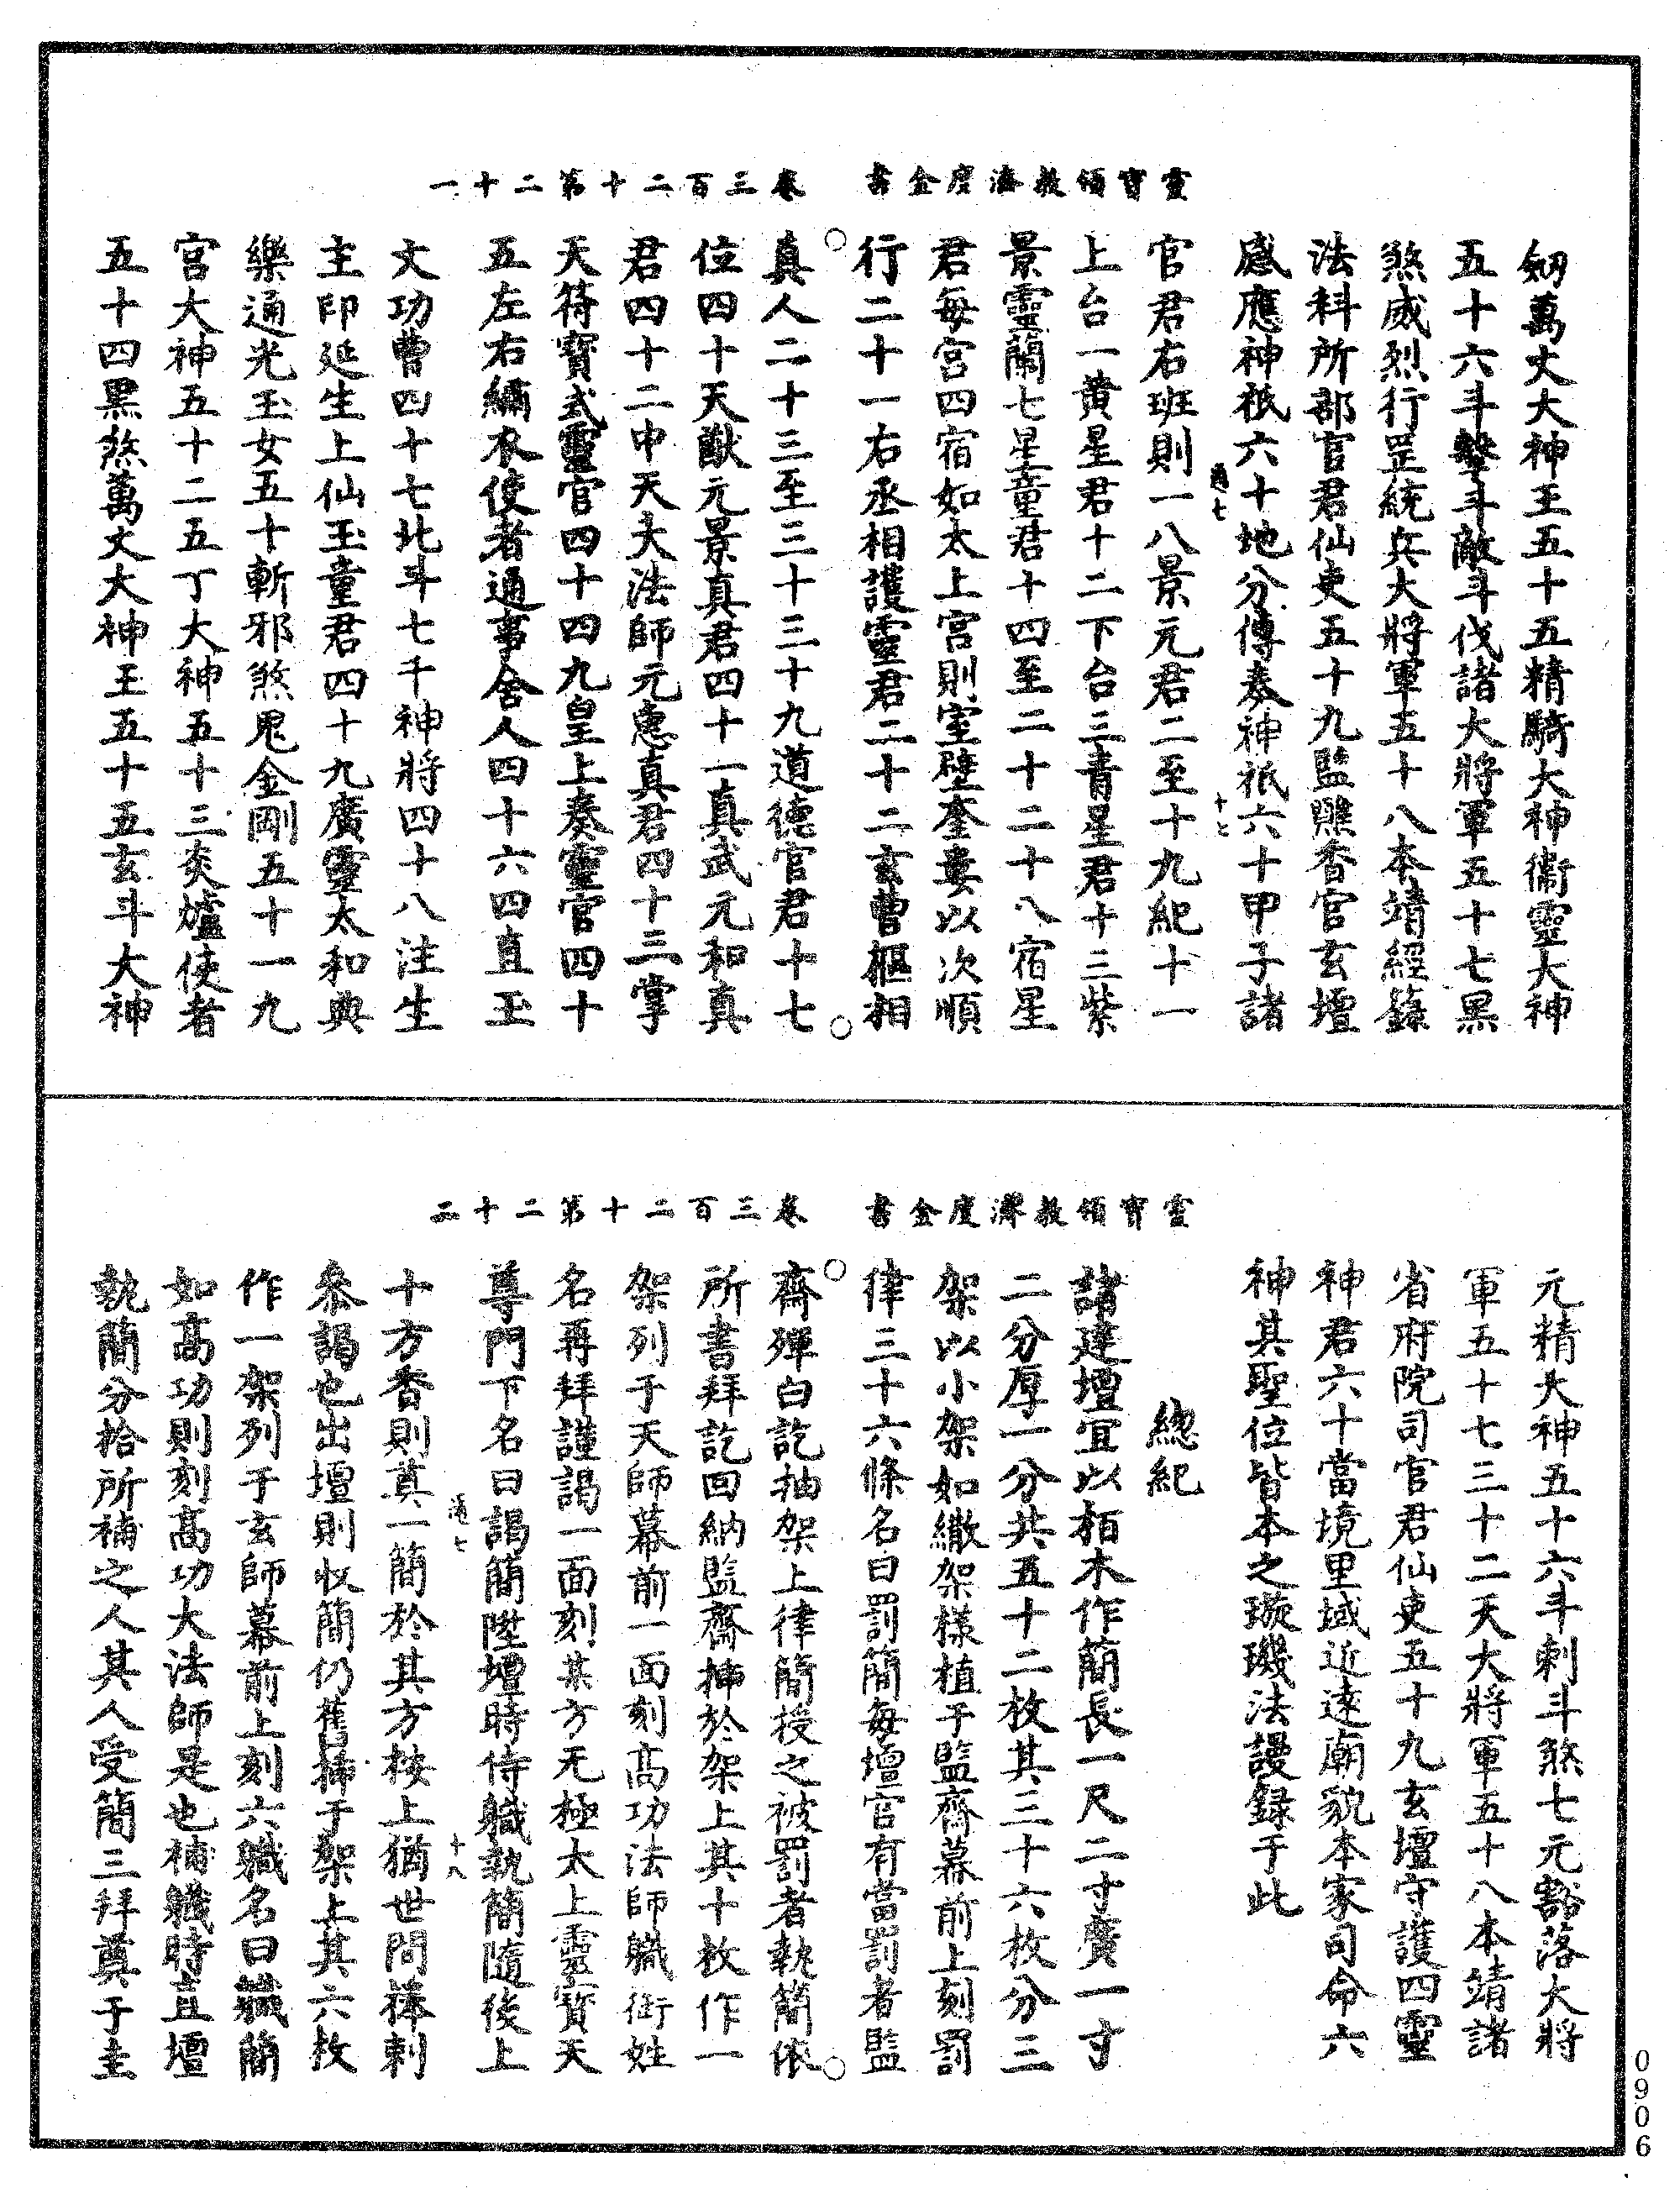 靈寶領教濟度金書　卷三百二十第二十一
劒萬丈大神王五十五精騎大神衞靈大神
五十六斗擊斗敵斗伐諸大將軍五十七黑
煞威烈行罡統兵大將軍五十八本靖經籙
法科所部官君仙吏五十九監臨香官玄壇
感應神祇六十地分傳奏神祇六十甲子諸
官君右班則一八景元君二至十九紀十一
上台一黄星君十二下台三青星君十三紫
景靈蘭七星童君十四至二十二十八宿星
君每宮四宿如太上宮則室壁奎婁以次順
行二十一右丞相護靈君二十二玄曹樞相
真人二十三至三十三十九道德官君十七
位四十天猷元景真君四十一真武元和真
君四十二中天大法師元惠真君四十三掌
天符寶式靈官四十四九皇上奏靈官四十
五左右繡衣使者通事舍人四十六四直玉
文功曹四十七北斗七千神將四十八注生
主印延生上仙玉童君四十九廣靈太和典
樂通光玉女五十斬邪煞鬼金剛五十一九
宮大神五十二五丁大神五十三炎爐使者
五十四黑煞萬丈大神王五十五玄斗大神
靈寶領教濟度金書　卷三百二十第二十二
元精大神五十六斗刺斗煞七元豁落大將
軍五十七三十二天大將軍五十八本靖諸
省府院司官君仙吏五十九玄壇守護四靈
神君六十當境里域近遠廟貌本家司命六
神其聖位皆本之璇璣法謾録于此
總紀
諸建壇宜以栢木作簡長一尺二寸廣一寸
二分厚一分共五十二枚其三十六枚分三
架以小架如繖架樣植于監齋幕前上刻罰
律三十六條名曰罰簡每壇官有當罰者監
齋殫白訖抽架上律簡授之被罰者執簡依
所書拜訖回納監齋揷於架上其十枚作一
架列于天師幕前一面刻高功法師職銜姓
名再拜謹謁一面刻某方无極太上靈寶天
尊門下名曰謁簡陞壇時侍職執簡隨後上
十方香則奠一簡於其方桉上猶世間捧刺
叅謁也出壇則收簡仍舊揷于架上其六枚
作一架列于玄師幕前上刻六職名曰職簡
如高功則刻高功大法師是也補職時直壇
執簡分拾所補之人其人受簡三拜奠于圭
0906